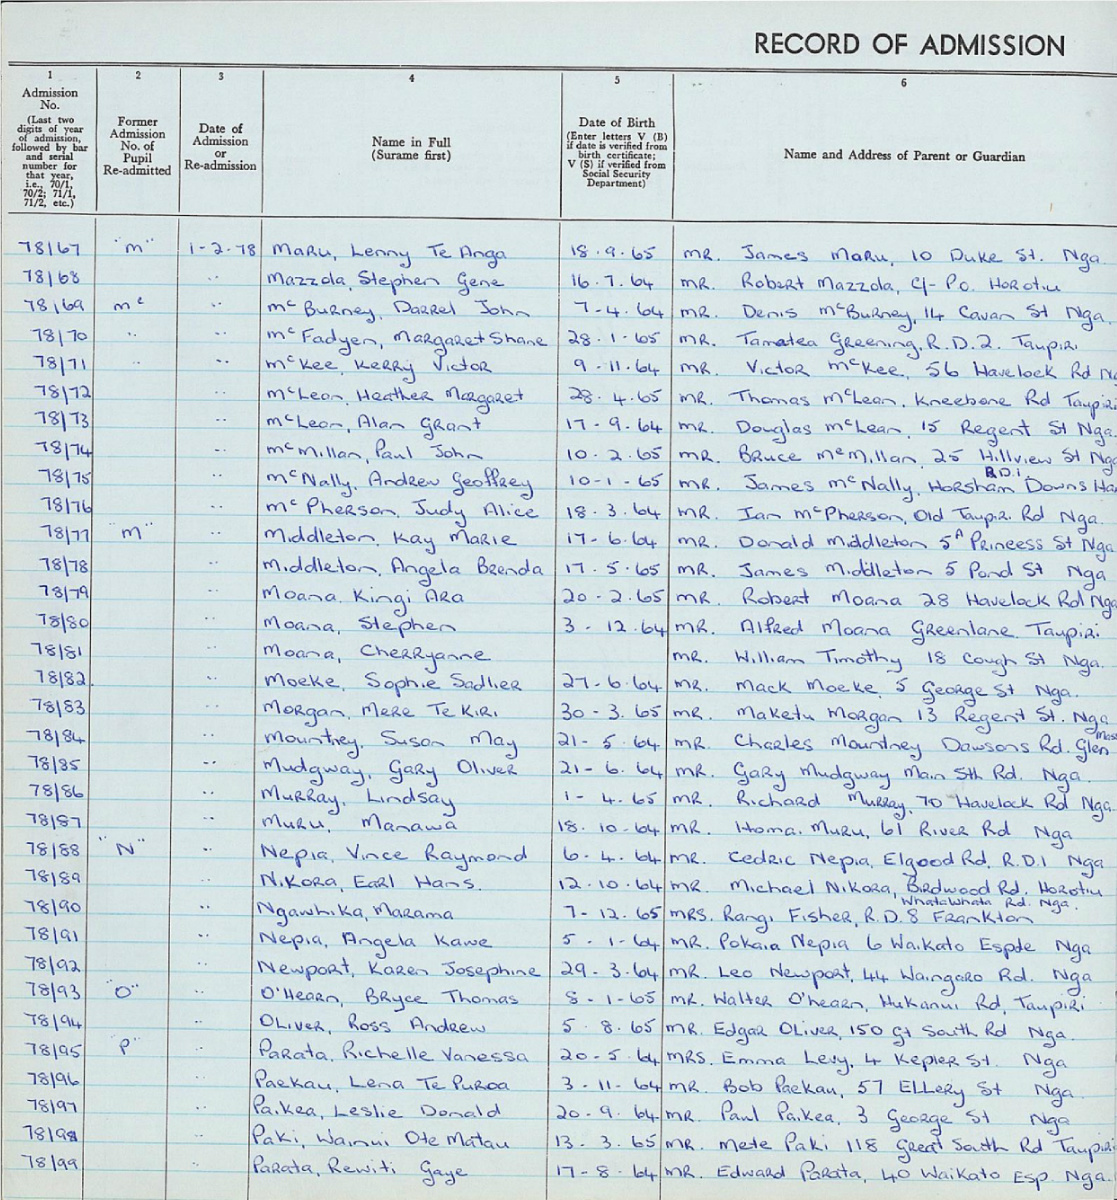 RECORD OF ADMISSION
1 2 3 4 5 6
Admission No. (Last two digits of year of admission, followed by bar and serial number for that year, i.e., 70/1, 70/2; 71/1, 71/2, etc.)
Former Admission No. of Pupil Re-admitted
Date of Admission or Re-admission
Name in Full (Surame first)
Date of Birth (Enter letters V (B) if date is verified from birth certificate; V (S) if verified from Social Security Department)
Name and Address of Parent or Guardian
78/67 "M" 1-2-78 Maru, Lenny Te Anga 18.9.65 MR. James Maru, 10 Duke St. Nga.
78/68 " Mazzola, Stephen Gene 16.7.64 MR. Robert Mazzola, C/- P.O. Horotiu
78/69 Mc " McBurney, Darrel John 7-4.64 MR. Denis McBurney, 14 Cavan St Nga.
78/70 " " McFadyen, Margaret Shane 28.1.65 MR. Tamatea Greening, R.D.2. Taupiri
78/71 " " McKee, Kerry Victor 9-11.64 MR. Victor McKee, 56 Havelock Rd
78/72 " McLean, Heather Margaret 28.4.65 MR. Thomas McLean, Kneebone Rd Taupiri
78/73 " McLean, Alan Grant 17-9.64 MR. Douglas McLean, 15 Regent St Nga.
78/74 " McMillan, Paul John 10.2.65 MR. Bruce McMillan, 25 Hillview St Nga
78/75 " McNally, Andrew Geoffrey 10-1-65 MR. James McNally, R.D.1 Horsham Downs
78/76 " McPherson, Judy Alice 18.3.64 MR. Ian McPherson, Old Taupiri Rd Nga.
78/77 "M" " Middleton, Kay Marie 17-6.64 MR. Donald Middleton 5A Princess St Nga
78/78 " Middleton, Angela Brenda 17.5.65 MR. James Middleton 5 Pond St Nga
78/79 " Moana, Kingi Ara 20-2.65 MR. Robert Moana 28 Havelock Rd Nga
78/80 " Moana, Stephen 3-12.64 MR. Alfred Moana Greenlane Taupiri
78/81 " Moana, Cherryanne MR. William Timothy 18 Gough St Nga.
78/82 " Moeke, Sophie Sadlier 27-6.64 MR. Mack Moeke, 5 George St Nga.
78/83 " Morgan, Mere Te Kiri 30-3.65 MR. Maketu Morgan 13 Regent St. Nga
78/84 " Mountney, Susan May 21-5.64 MR. Charles Mountney Dawsons Rd. Glen
78/85 " Mudgway, Gary Oliver 21-6.64 MR. Gary Mudgway Main Sth Rd. Nga.
78/86 " Murray, Lindsay 1-4.65 MR. Richard Murray, 70 Havelock Rd Nga.
78/87 " Muru, Manawa 18.10-64 MR. Homai Muru, 61 River Rd Nga
78/88 "N" " Nepia, Vince Raymond 6-4.64 MR. Cedric Nepia, Elgood Rd. R.D.1 Nga
78/89 " Nikora, Earl Hans. 12.10.64 MR. Michael Nikora, Birdwood Rd. Horotiu
78/90 " Ngawhika, Marama 7-12.65 MRS. Rangi Fisher, R.D.8 Frankton Whatawhata Rd. Nga.
78/91 " Nepia, Angela Kawe 5.1-64 MR. Pokaia Nepia 6 Waikato Espde Nga
78/92 " Newport, Karen Josephine 29-3.64 MR. Leo Newport, 44 Waingaro Rd. Nga
78/93 "O" " O'Hearn, Bryce Thomas 8-1-65 MR. Walter O'Hearn, Hukanui Rd, Taupiri
78/94 " Oliver, Ross Andrew 5.8.65 MR. Edgar Oliver, 150 Gt South Rd Nga.
78/95 "P" " Parata, Richelle Vanessa 20-5.64 MRS. Emma Levy, 4 Kepler St. Nga
78/96 " Paekau, Lena Te Puroa 3-11-64 MR. Bob Paekau, 57 Ellery St Nga.
78/97 " Paikea, Leslie Donald 20-9.64 MR. Paul Paikea, 3 George St Nga
78/98 " Paki, Wainui Ote Matau 13.3.65 MR. Mete Paki 118 Great South Rd Taupiri
78/99 " Parata, Rewiti Gaye 17-8.64 MR. Edward Parata, 40 Waikato Esp. Nga.